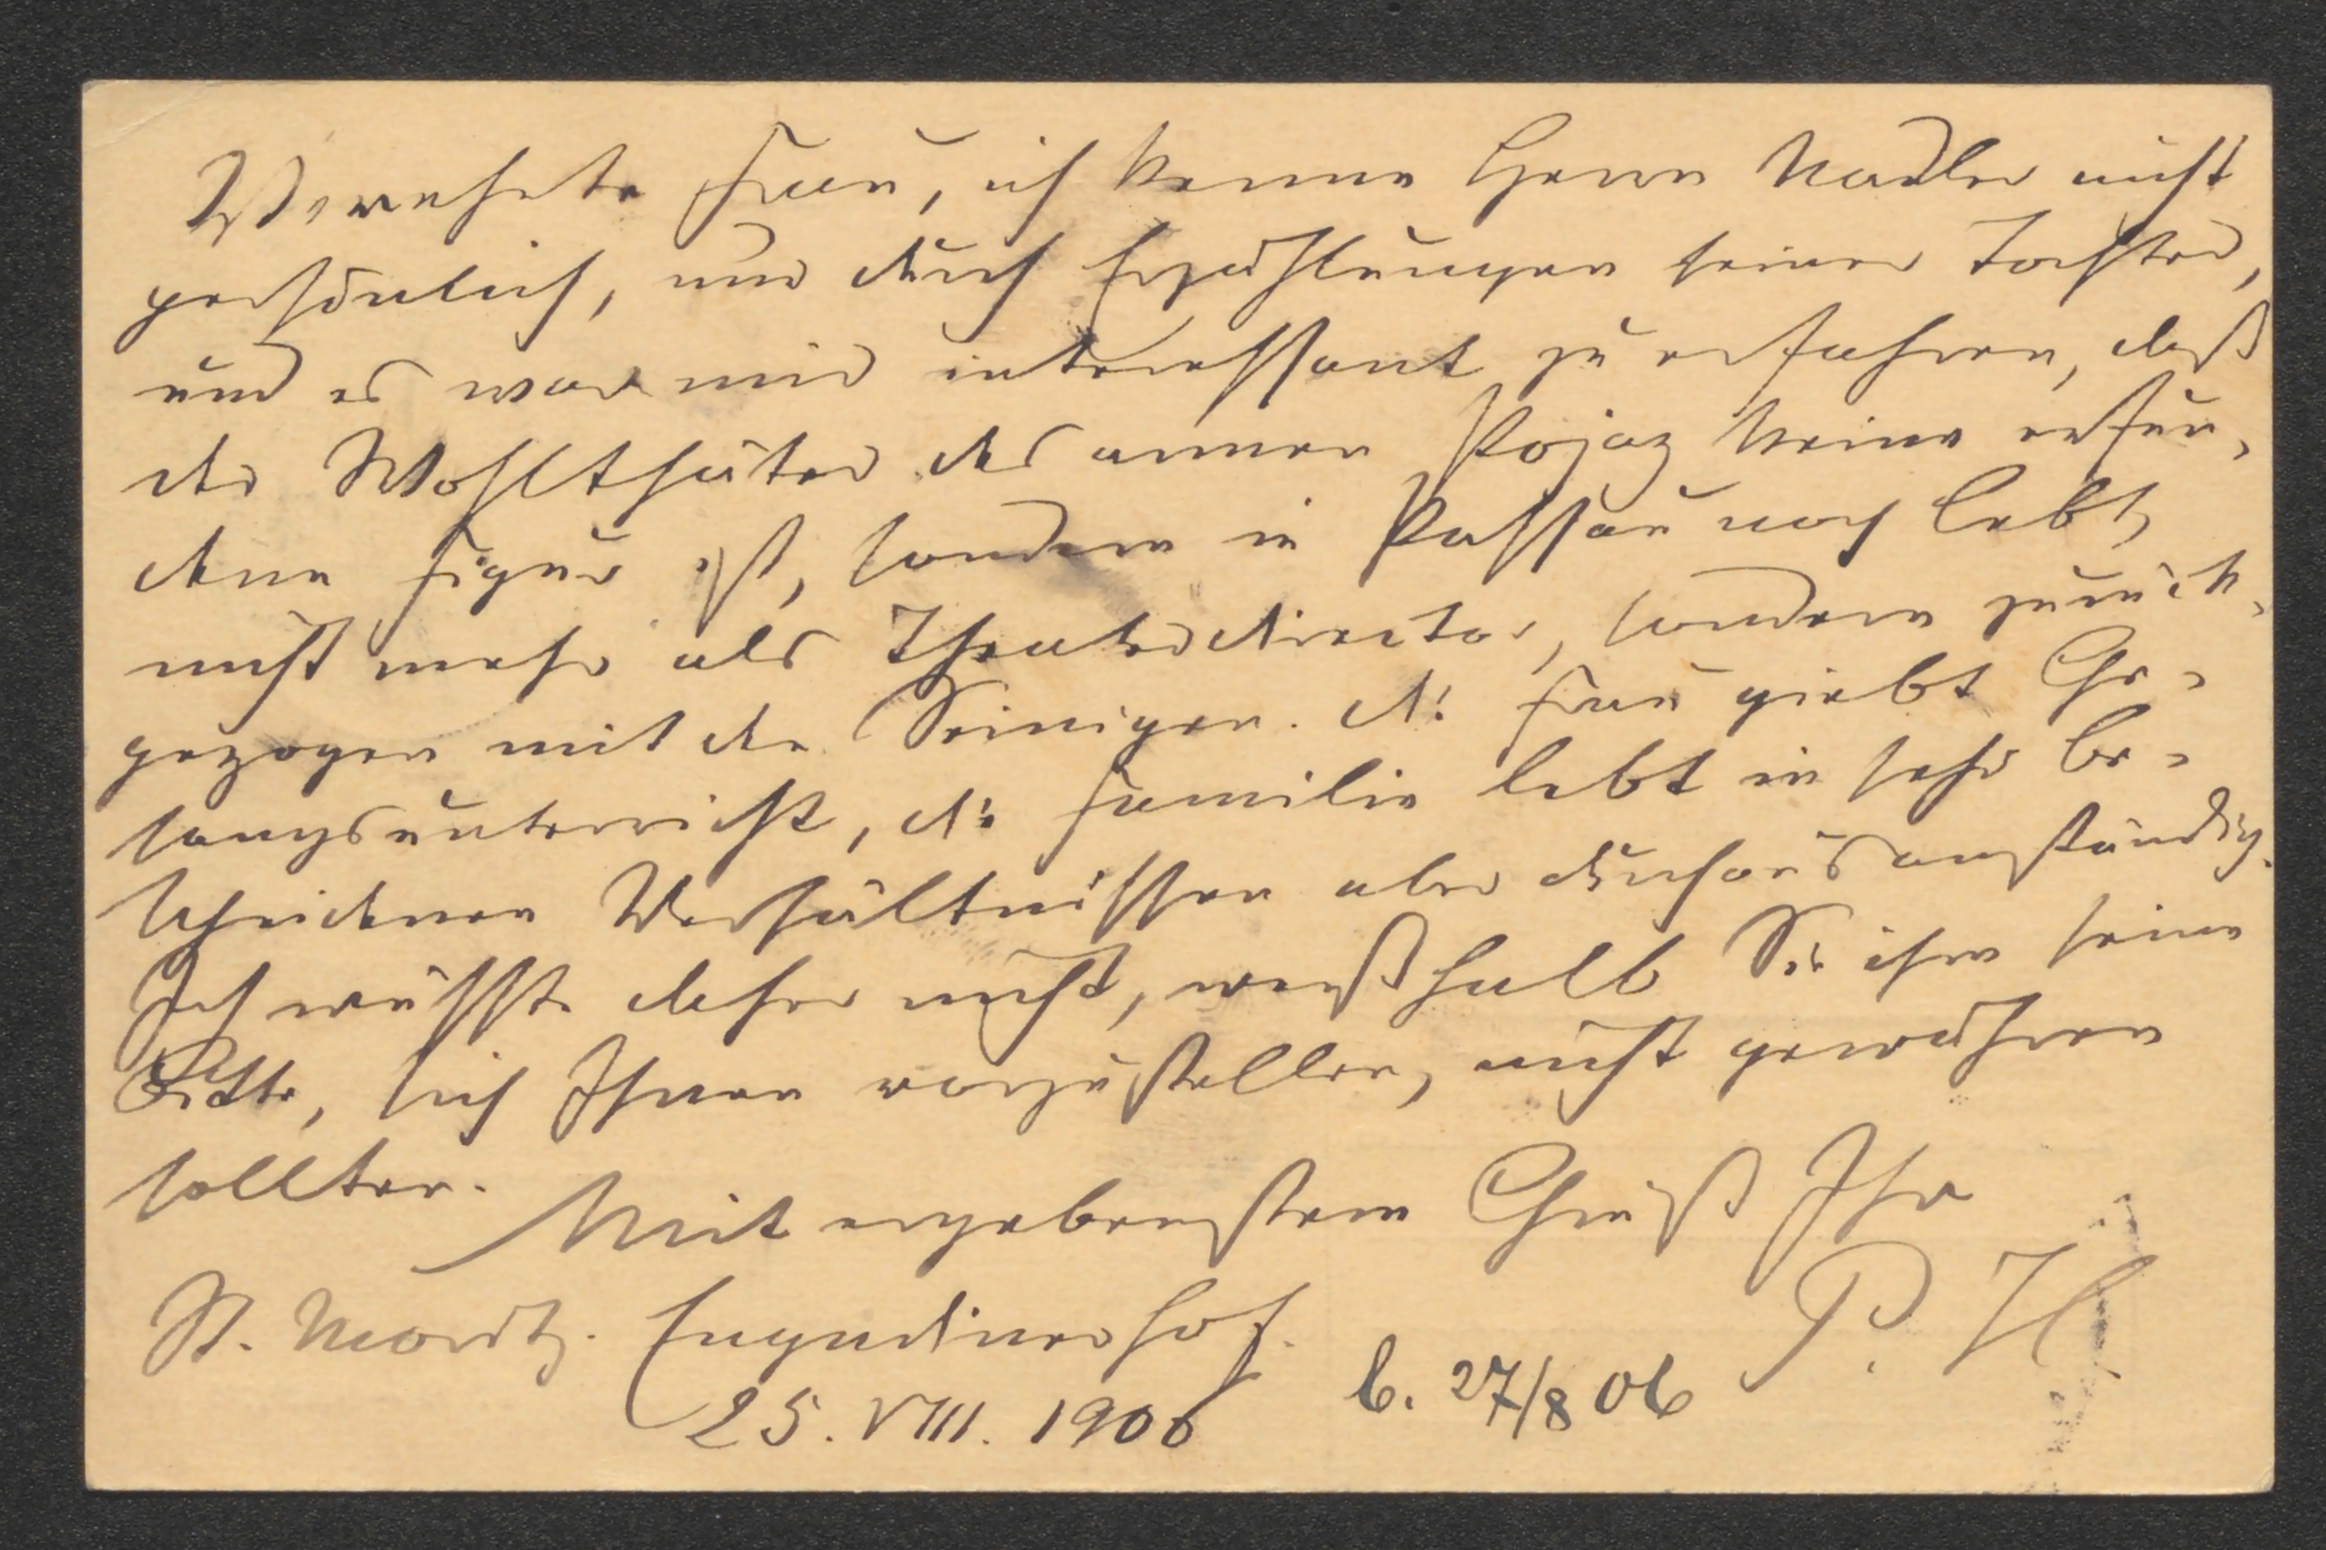 Verehrte Frau, ich kenne Herrn Nadler nicht
persönlich, nur durch Erzählungen seiner Tochter,
und es war mir interessant zu erfahren, daß
der Wohlthäter des armen Pojaz keine erfun-
dene Figur ist, sondern in Passau noch lebt,
nicht mehr als Theaterdirector, sondern zurück-
gezogen mit den Seinigen. Die Frau giebt Ge-
sangsunterricht, die Familie lebt in sehr be-
scheidenen Verhältnissen aber durchaus anständig.
Ich wüsste daher nicht, weßhalb Sie ihm seine
Bitte, sich Ihnen vorzustellen, nicht gewähren
sollten.
Mit ergebenstem Gruß Ihr
P. H
St. Moritz. Engadinerhof.
25. VIII. 1906
b. 27/8 06